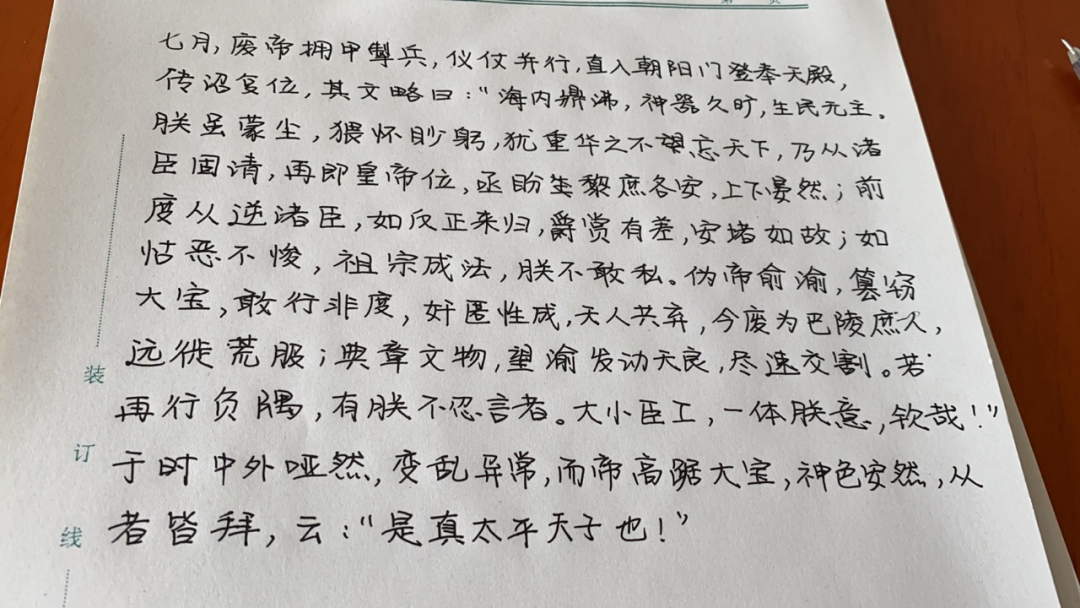 七月,废帝拥甲掣兵,仪仗并行,直入朝阳门登奉天殿,
传诏复位,其文略曰:“海内鼎沸,神器久旷,生民无主。
朕虽蒙尘,猥怀眇躬,犹重华之不望忘天下,乃从诸
臣固请,再即皇帝位,亟盼生黎庶各安,上下晏然;前
度从逆诸臣,如反正来归,爵赏有差,安堵如故;如
怙恶不悛,祖宗成法,朕不敢私。伪帝俞渝,篡窃
大宝,敢行非度,奸匿性成,天人共弃,今废为巴陵庶人,
远徙荒服;典章文物,望渝发动天良,尽速交割。若
再行负隅,有朕不忍言者。大小臣工,一体朕意,钦哉!”
于时中外哑然,变乱异常,而帝高踞大宝,神色安然,从
者皆拜,云:“是真太平天子也!”
装
订
线